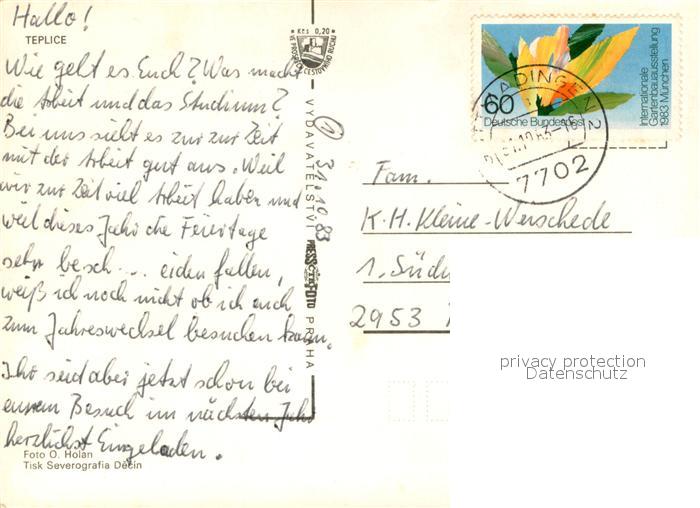 Hallo!
TEPLICE
Wie geht es Euch? Was macht
die Arbeit und das Studium?
Bei uns sieht es zur zur Zeit
mit der Arbeit gut aus. Weil
wir zur Zeit viel Arbeit haben und
weil dieses Jahr die Feiertage
sehr besch... eiden fallen,
weiß ich noch nicht ob ich euch
zum Jahreswechsel besuchen kann.
Ihr seid aber jetzt schon bei
einem Besuch im nächsten Jahr
herzlichst Eingeladen.
Foto O. Holan
Tisk Severografia Děčín
Kčs 0,20
VYDAVATELSTVÍ PRESSFOTO PRAHA
① 31.10.83
60
Deutsche Bundespost
Internationale
Gartenbauausstellung
1983 München
7702
Fam.
K.H. Kleine-Werschede
1. Südw
2953
privacy protection
Datenschutz